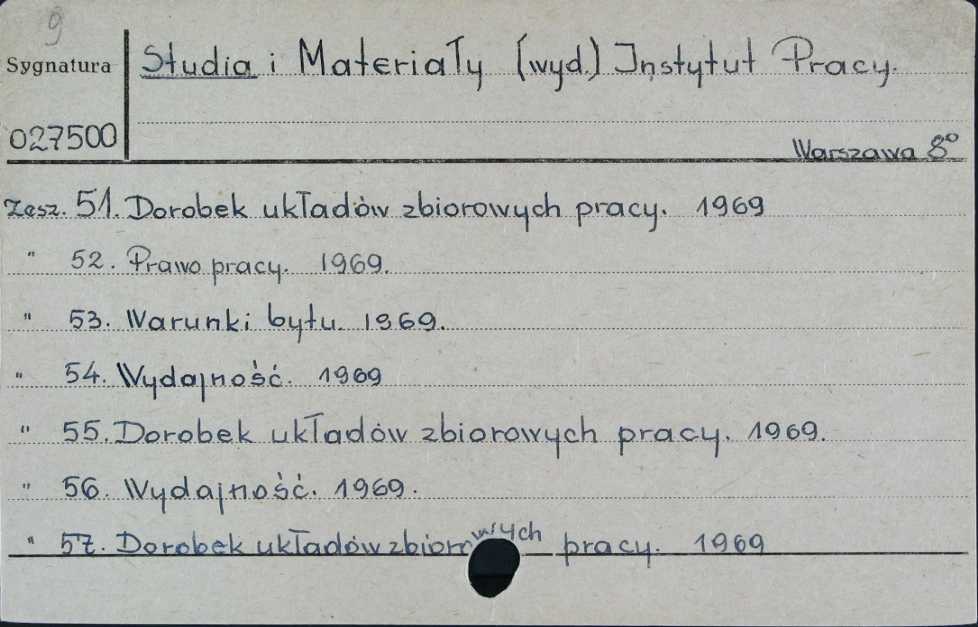 9
Sygnatura
Studia i Materiały (wyd.) Instytut Pracy.
027500
Warszawa 8°
Zesz. 51. Dorobek układów zbiorowych pracy. 1969
" 52. Prawo pracy. 1969.
" 53. Warunki bytu. 1969.
" 54. Wydajność. 1969
" 55. Dorobek układów zbiorowych pracy. 1969.
" 56. Wydajność. 1969.
" 57. Dorobek układów zbiorowych pracy. 1969